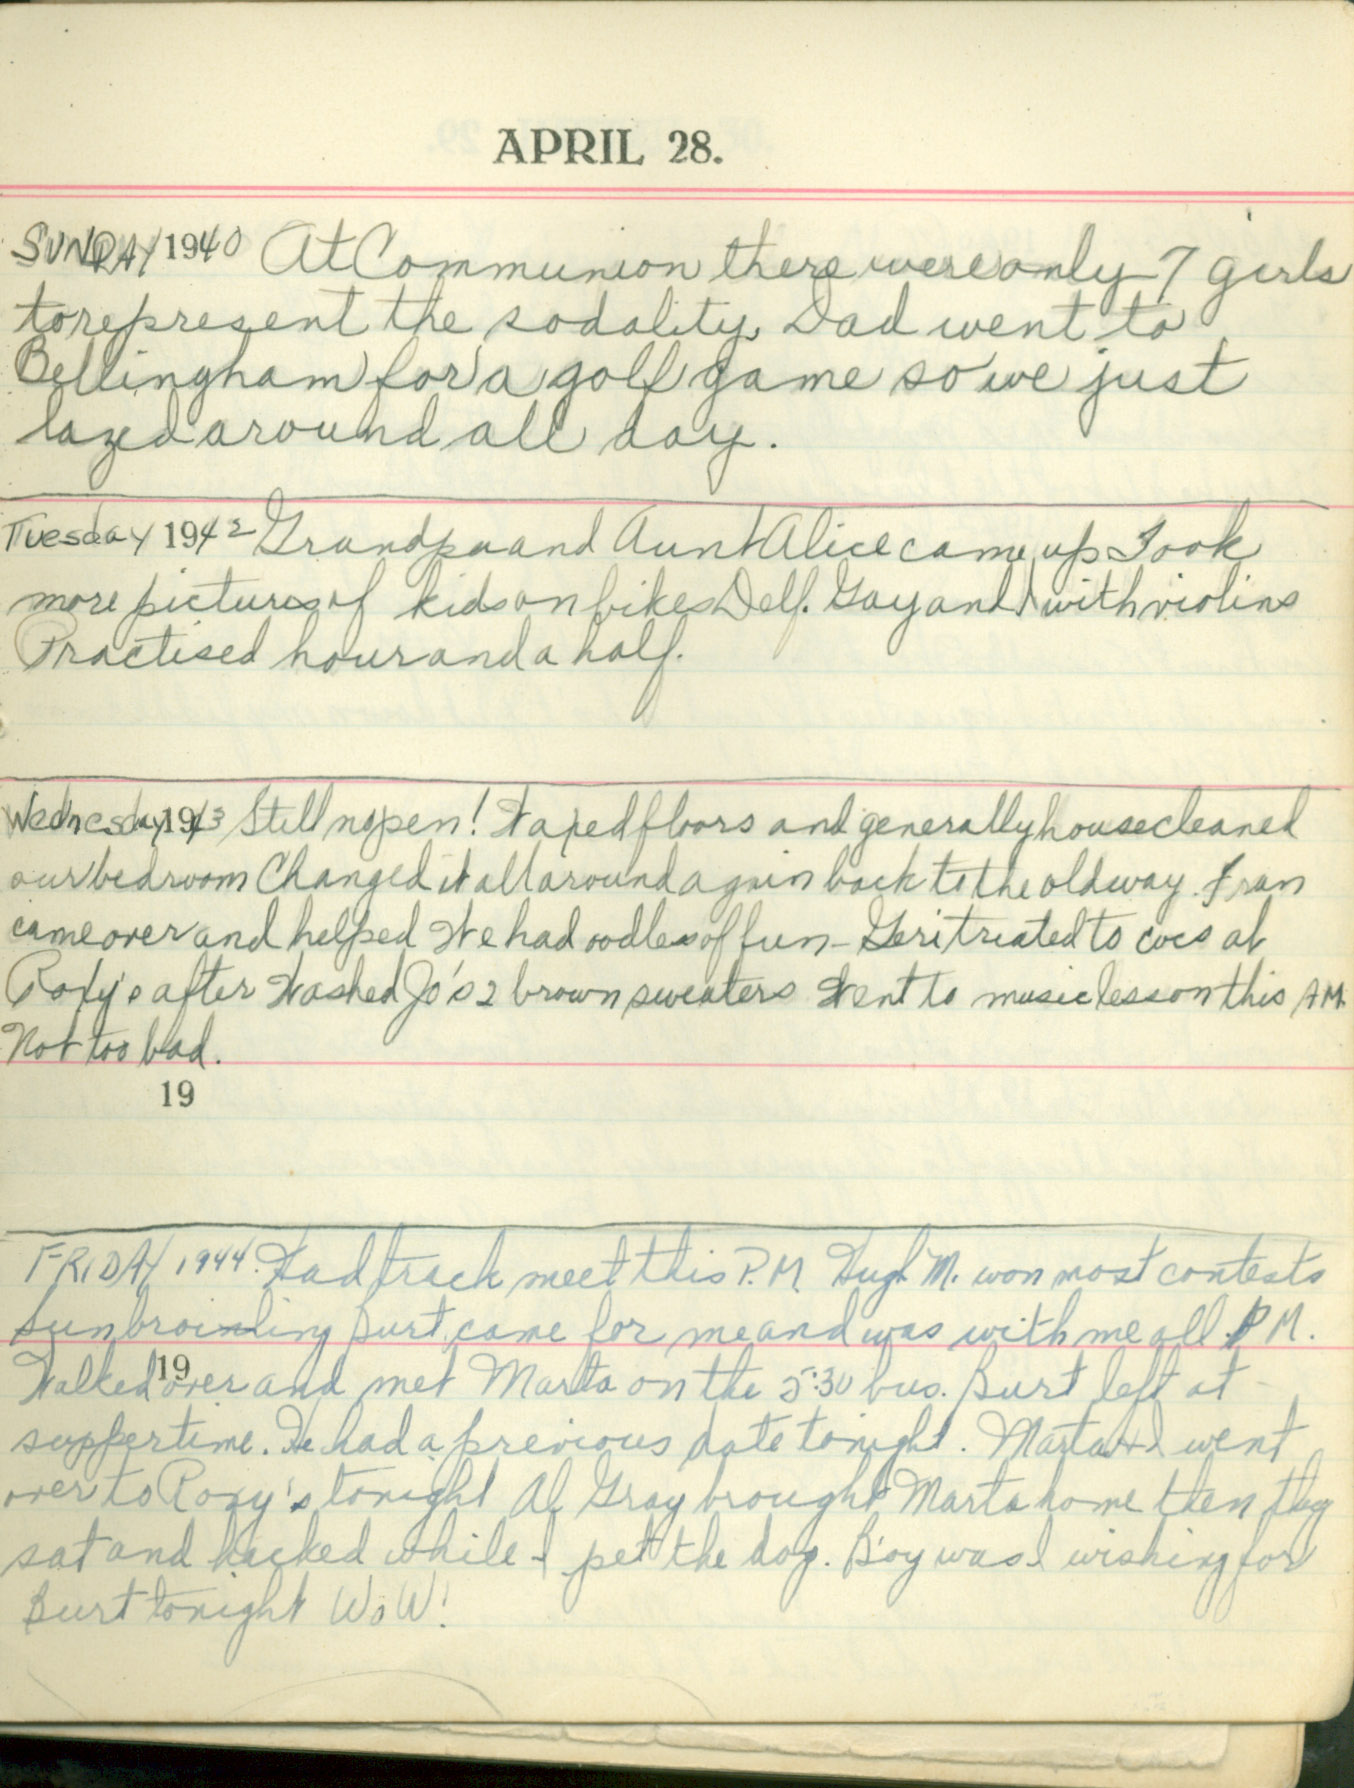 APRIL 28.
SUNDAY 1940 At Communion there were only 7 girls
to represent the sodality. Dad went to
Bellingham for a golf game so we just
lazed around all day.
Tuesday 1942 Grandpa and Aunt Alice came up Took
more pictures of kids on bikes Delf. Gay and I with violins
Practised hour and a half.
Wednesday 1943 Still no pen! Waxed floors and generally housecleaned
our bedroom Changed it all around again back to the old way. Fran
came over and helped We had oodles of fun - Geri treated to cocs at
Roxy's after Washed Jo's 2 brown sweaters Went to music lesson this AM.
Not too bad.
19
FRIDAY 1944. Had track meet this P.M. Hugh M. won most contests
Burt came for me and was with me all PM.
19
Walked over and met Marta on the 5:30 bus. Burt left at
suppertime. He had a previous date tonight. Marta & I went
over to Roxy's tonight Al Gray brought Marta home then they
sat and hacked while I pet the dog. Boy was I wishing for
Burt tonight WoW!